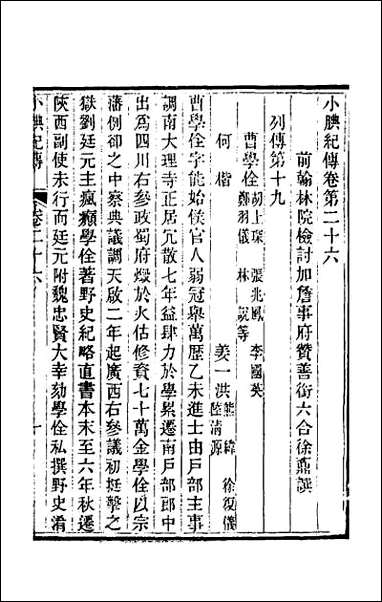 小腆紀傳卷第二十六
前翰林院檢討加詹事府贊善銜六合徐鼒譔
列傳第十九
曹學佺 胡上琛 張兆鳳 李國英
鄭羽儀 林 説等
何楷 姜一洪 熊緯 徐復儀
陸清源
曹學佺字能始侯官人弱冠舉萬歷乙未進士由戶部主事
調南大理寺正居冗散七年益肆力於學累遷南戶部郎中
出爲四川右參政蜀府燬於火估修資七十萬金學佺以宗
藩例卻之中察典議調天啟二年起廣西右參議初挺擊之
獄劉廷元主瘋癲學佺著野史紀略直書本末至六年秋遷
陝西副使未行而廷元附魏忠賢大幸劾學佺私撰野史淆
小腆紀傳 卷二十六